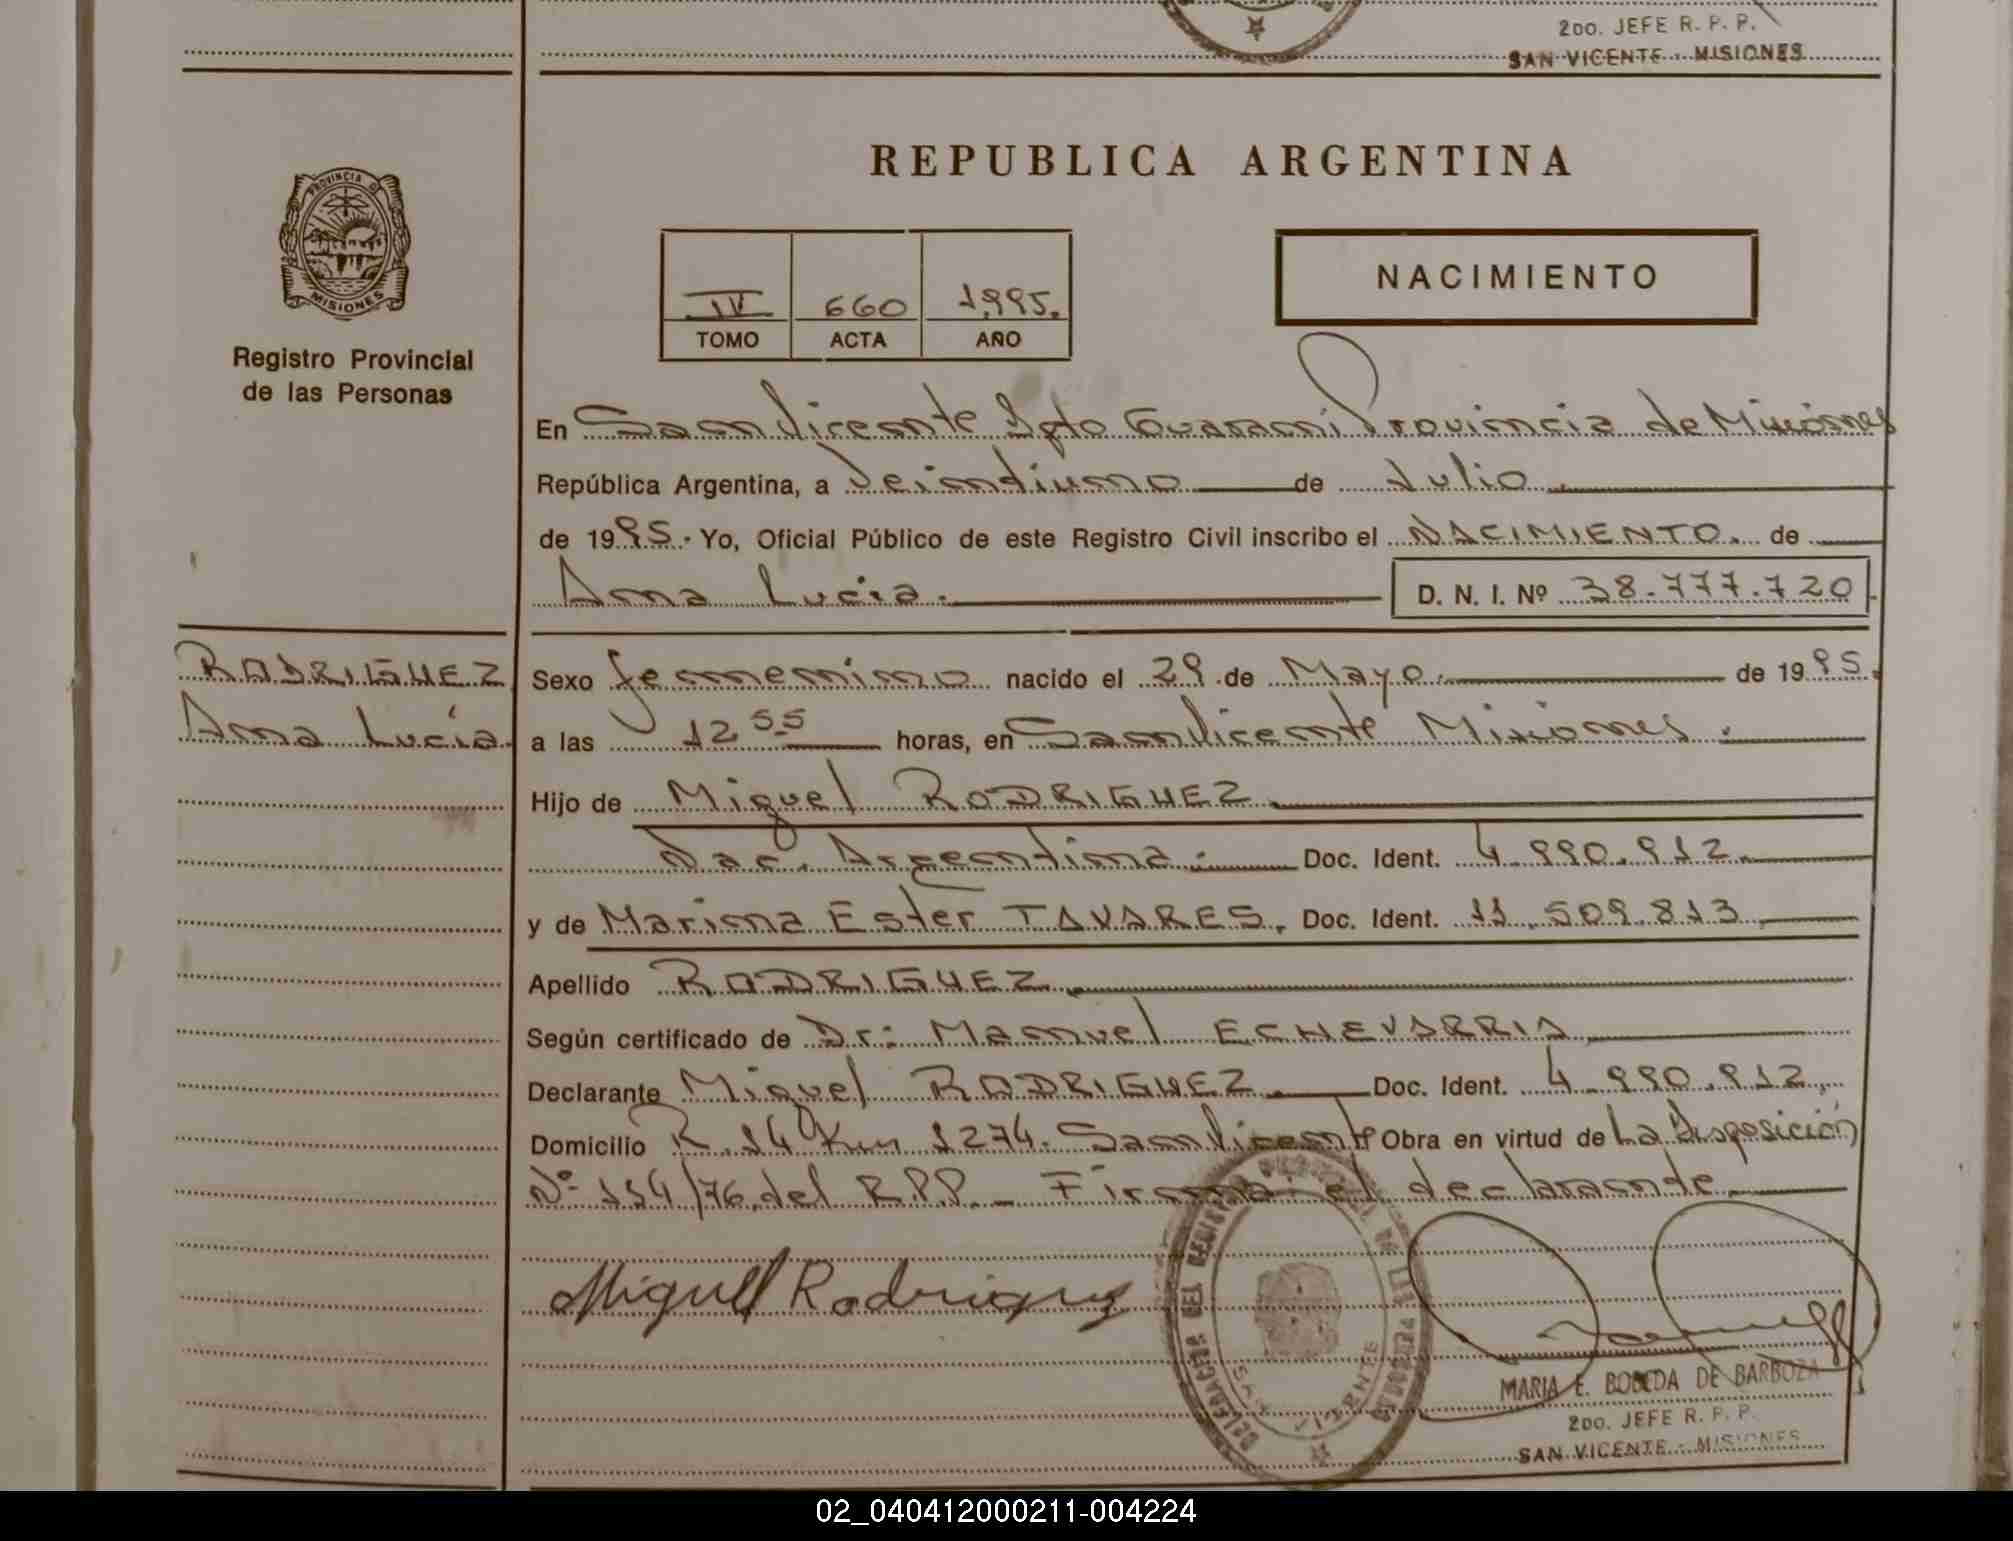 2DO. JEFE R. P. P.
SAN VICENTE - MISIONES
REPUBLICA ARGENTINA
PROVINCIA D
MISIONES
Registro Provincial
de las Personas
NACIMIENTO
IV 660 1.995.
TOMO ACTA AÑO
En San Vicente Dpto Guarani Provincia de Misiones
República Argentina, a Veintiuno de Julio
de 1995. Yo, Oficial Público de este Registro Civil inscribo el NACIMIENTO. de
Ana Lucia. D. N. I. Nº 38.777.720
RODRIGUEZ
Ana Lucía
Sexo femenino nacido el 29 de Mayo. de 1995.
a las 12 55 horas, en San Vicente Misiones.
Hijo de Miguel RODRIGUEZ.
Nac. Argentina. Doc. Ident. 4.990.912.
y de Marina Ester TAVARES. Doc. Ident. 11.509.813
Apellido RODRIGUEZ.
Según certificado de Dr: Manuel ECHEVARRIA
Declarante Miguel RODRIGUEZ. Doc. Ident. 4.990.912.
Domicilio R. 14 Km 1274. San Vicente Obra en virtud de La Disposición
Nº 114/76 del R.P.P. - Firma el declarante.
Miguel Rodriguez
DELEGACION DEL REGISTRO PROVINCIAL DE LAS PERSONAS
SAN VICENTE
MARIA E. BOBEDA DE BARBOZA
2DO. JEFE R. P. P.
SAN VICENTE - MISIONES
02_040412000211-004224